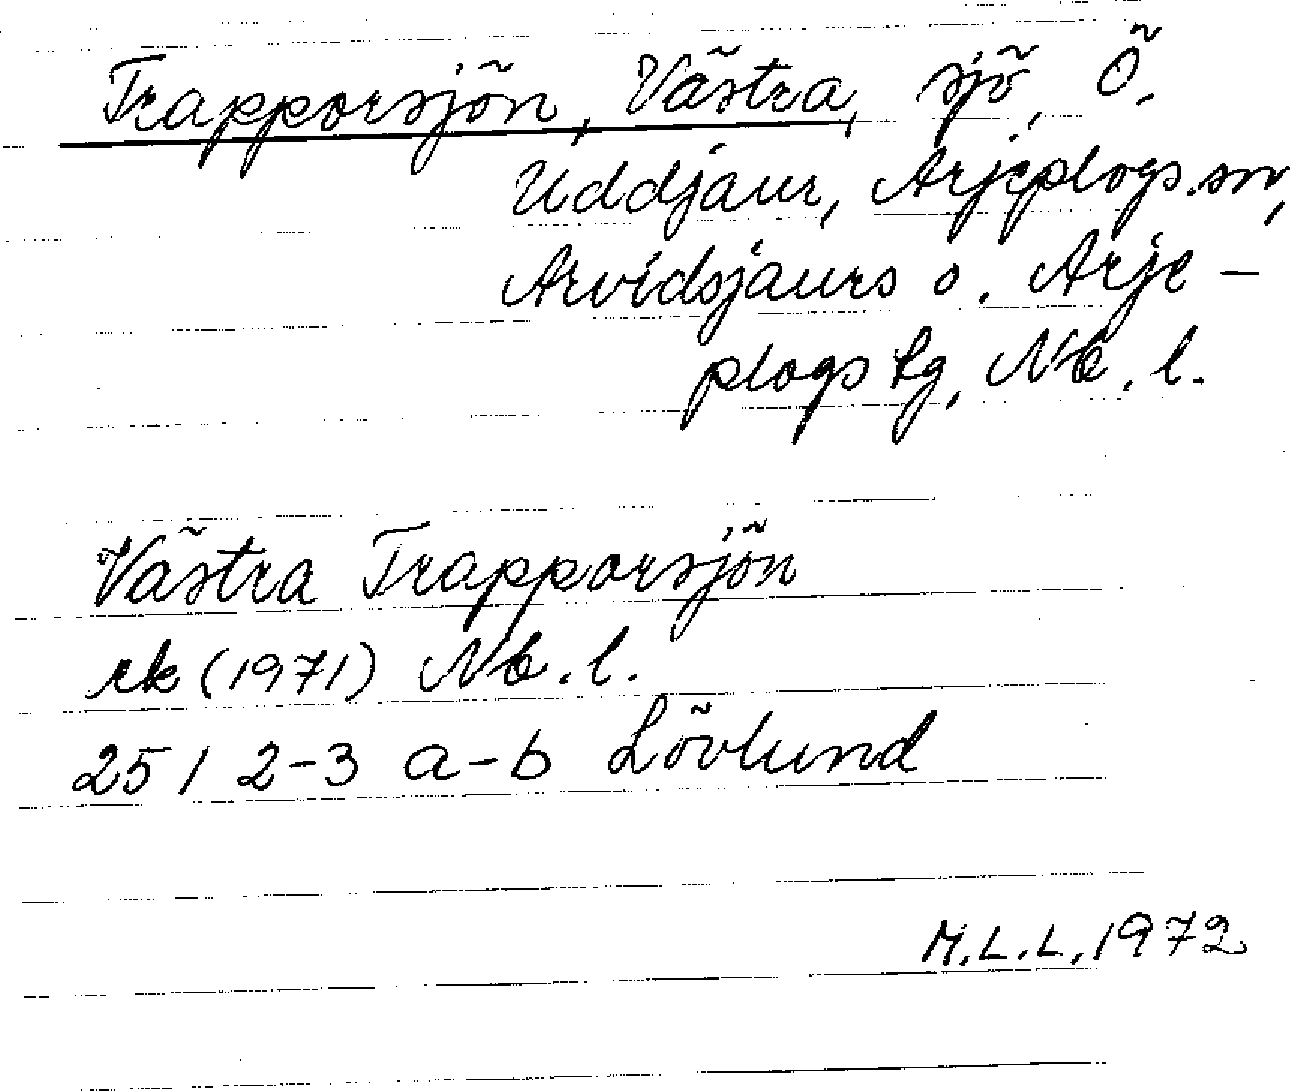 Trapporsjön, Västra, sjö, Ö.
Uddjaur, Arjeplogs sn,
Arvidsjaurs o. Arje-
plogs tg, Nb. l.
Västra Trapporsjön
rk (1971) Nb. l.
25 I 2-3 a-b Lövlund
M.L.L, 1972